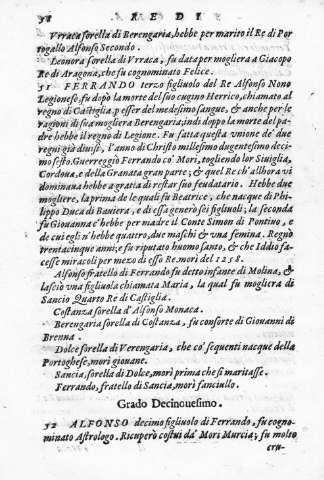 38 R E D I
Vrraca sorella di Berengaria, hebbe per marito il Re di Por
togallo Alfonso Secondo.
Leonora sorella di Vrraca, fu data per mogliera a Giacopo
Re di Aragona, che fu cognominato Felice.
51 FERRANDO terzo figliuolo del Re Alfonso Nono
Legionese, fu dipò la morte del suo cugino Herrico, chiamato al
regno di Castiglia, p esser del medesimo sangue, & anche per le
ragioni di sua mogliera Berengaria; indi doppo la morte del pa-
dre hebbe il regno di Legione. Fu fatta questa vnione de' due
regni già diuisi, l'anno di Christo millesimo dugentesimo deci
mo sesto. Guerreggiò Ferrando co' Mori, togliendo lor Siuiglia,
Cordoua, e della Granata gran parte; & quel Re ch'allhora vi
dominaua hebbe a gratia di restar suo feudatario. Hebbe due
mogliere, la prima de le quali fu Beatrice, che nacque di Phi-
lippo Duca di Bauiera, e di essa generò sei figliuoli; la seconda
fu Giouanna c'hebbe per madre il Conte Simon di Pontino, e
de cui egli n'hebbe quattro, due maschi & vna femina. Regnò
trentacinque anni; e fu riputato huomo santo, & che Iddio fa-
cesse miracoli per mezo di esso Re. morì del 1258.
Alfonso fratello di Ferrando fu detto infante di Molina, &
lasciò vna figliuola chiamata Maria, la qual fu mogliera di
Sancio Quarto Re di Castiglia.
Costanza sorella d'Alfonso Monaca.
Berengaria sorella di Costanza, fu consorte di Giouanni di
Brenna.
Dolce sorella di Verengaria, che co' sequenti nacque della
Portoghese, morì giouane.
Sancia, sorella di Dolce, morì prima che si maritasse.
Ferrando, fratello di Sancia, morì fanciullo.
Grado Decinouesimo.
52 ALFONSO decimo figliuolo di Ferrando, fu cogno-
minato Astrologo. Ricuperò costui da' Mori Murcia; fu molto
cru-